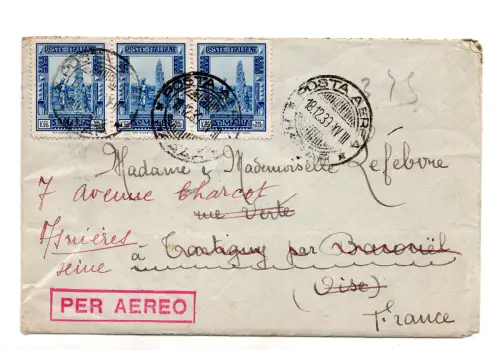 POSTE ITALIANE POSTE ITALIANE POSTE ITALIANE
SOMALIA SOMALIA SOMALIA
POSTA AEREA
18.12.39.XVIII
3 75
Madame & Mademoiselle Lefebvre
7 avenue Charcot
rue Verte
Asnières
à Tartigny par Bacouël
Seine
(Oise)
PER AEREO
France